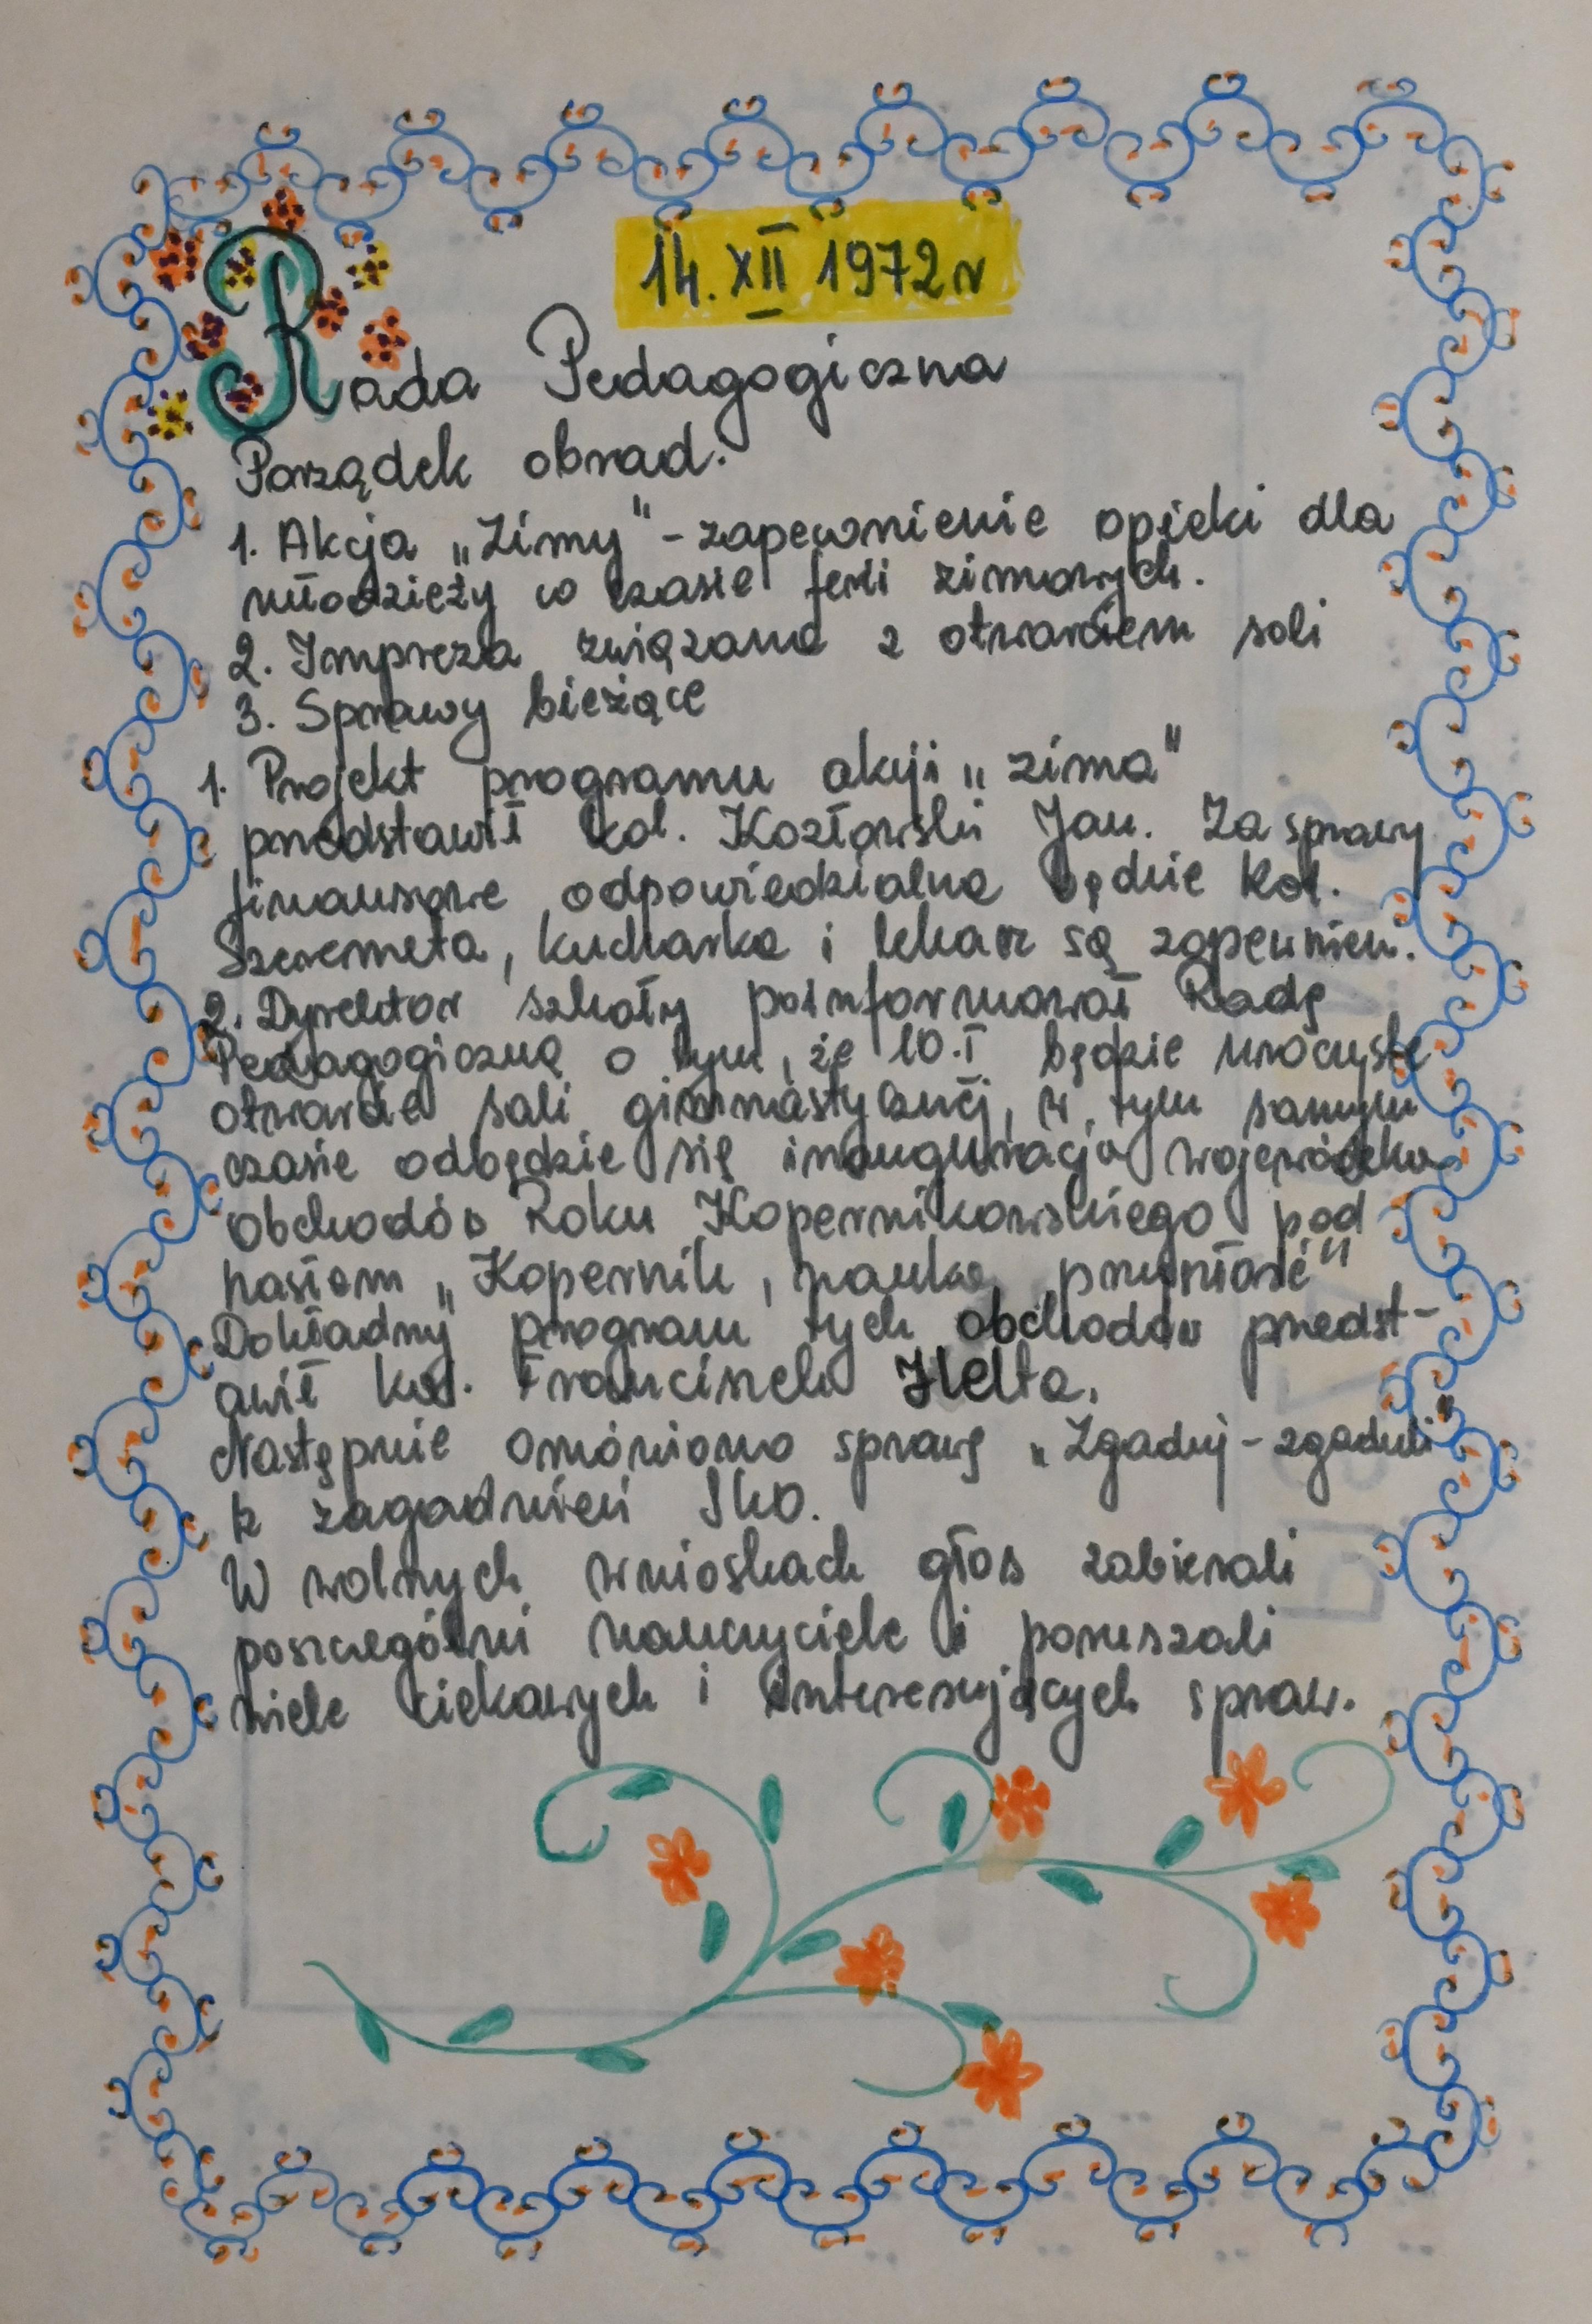 14. XII 1972 r
Rada Pedagogiczna
Porządek obrad.
1. Akcja „Zimy" - zapewnienie opieki dla
młodzieży w czasie ferii zimowych.
2. Impreza związana z otwarciem sali
3. Sprawy bieżące
1. Projekt programu akcji „zima"
przedstawił kol. Kozłowski Jan. Za sprawy
finansowe odpowiedzialna będzie kol.
Szeremeta, kucharka i lekarz są zapewnien.
2. Dyrektor szkoły poinformował Radę
Pedagogiczną o tym, że 10.I będzie uroczyste
otwarcie sali gimnastycznej, w tym samym
czasie odbędzie się inauguracja wojewódzka
obchodów Roku Kopernikowskiego pod
hasłem „Kopernik, nauka, przyszłość"
Dokładny program tych obchodów przedst-
awił kol. Franciszek Helta.
Następnie omówiono sprawę „Zgaduj - zgaduli"
z zagadnień SKO.
W wolnych wnioskach głos zabierali
poszczególni nauczyciele i poruszali
wiele ciekawych i interesujących spraw.